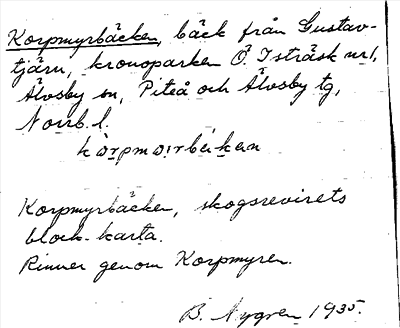 Korpmyrbäcken, bäck från Gustav-
tjärn, kronoparken Ö. Isträsk nr 1,
Älvsby sn, Piteå och Älvsby tg,
Norrb. l.
kòrpmørbékən
Korpmyrbäcken, skogsrevirets
block-karta.
Rinner genom Korpmyren.
B. Nygren 1935.